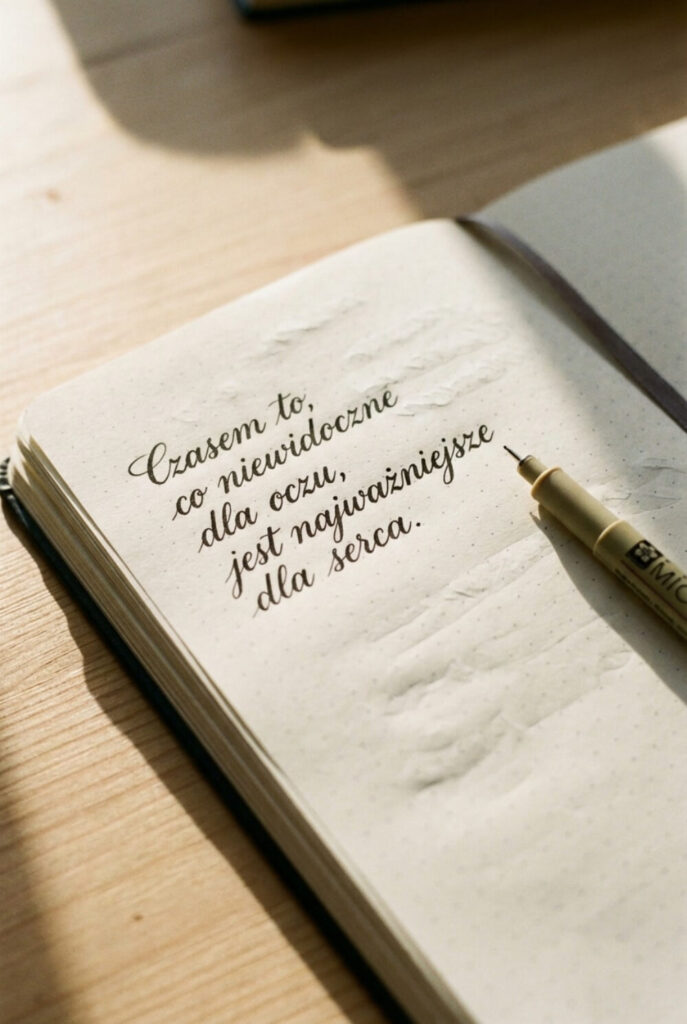 Czasem to,
co niewidoczne
dla oczu,
jest najważniejsze
dla serca.
MIC